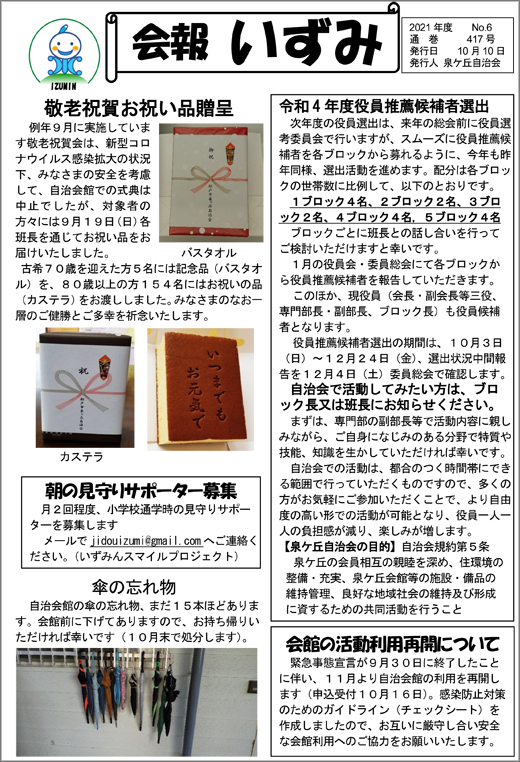 IZUMIN
会報 いずみ
2021年度 No.6
通 巻 417号
発行日 10月10日
発行人 泉ケ丘自治会
敬老祝賀お祝い品贈呈
例年９月に実施していま
す敬老祝賀会は、新型コロ
ナウイルス感染拡大の状況
下、みなさまの安全を考慮
して、自治会館での式典は
中止でしたが、対象者の
方々には９月１９日（日）各
班長を通じてお祝い品をお
届けいたしました。
バスタオル
古希７０歳を迎えた方５名には記念品（バスタオ
ル）を、８０歳以上の方１５４名にはお祝いの品
（カステラ）をお渡ししました。みなさまのなお一
層のご健勝とご多幸を祈念いたします。
祝
いつまでも
お元気で
カステラ
朝の見守りサポーター募集
月２回程度、小学校通学時の見守りサポー
ターを募集します
メールで jidouizumi@gmail.com へご連絡く
ださい。（いずみんスマイルプロジェクト）
傘の忘れ物
自治会館の傘の忘れ物、まだ１５本ほどありま
す。会館前に下げてありますので、お持ち帰りい
ただければ幸いです（１０月末で処分します）。
令和４年度役員推薦候補者選出
次年度の役員選出は、来年の総会前に役員選
考委員会で行いますが、スムーズに役員推薦候
補者を各ブロックから募れるように、今年も昨
年同様、選出活動を進めます。配分は各ブロッ
クの世帯数に比例して、以下のとおりです。
１ブロック４名、２ブロック２名、３ブロ
ック２名、４ブロック４名，５ブロック４名
ブロックごとに班長との話し合いを行って
ご検討いただけますと幸いです。
１月の役員会・委員総会にて各ブロックか
ら役員推薦候補者を報告していただきます。
このほか、現役員（会長・副会長等三役、
専門部長・副部長、ブロック長）も役員候補
者となります。
役員推薦候補者選出の期間は、１０月３日
（日）～１２月２４日（金）、選出状況中間報
告を１２月４日（土）委員総会で確認します。
自治会で活動してみたい方は、ブロ
ック長又は班長にお知らせください。
まずは、専門部の副部長等で活動内容に親し
みながら、ご自身になじみのある分野で特質や
技能、知識を生かしていただければ幸いです。
自治会での活動は、都合のつく時間帯にでき
る範囲で行っていただくものですので、多くの
方がお気軽にご参加いただくことで、より自由
度の高い形での活動が可能となり、役員一人一
人の負担感が減り、楽しみが増します。
【泉ケ丘自治会の目的】自治会規約第５条
泉ケ丘の会員相互の親睦を深め、住環境の
整備・充実、泉ケ丘会館等の施設・備品の
維持管理、良好な地域社会の維持及び形成
に資するための共同活動を行うこと
会館の活動利用再開について
緊急事態宣言が９月３０日に終了したこと
に伴い、１１月より自治会館の利用を再開し
ます（申込受付１０月１６日）。感染防止対策
のためのガイドライン（チェックシート）を
作成しましたので、お互いに厳守し合い安全
な会館利用へのご協力をお願いいたします。